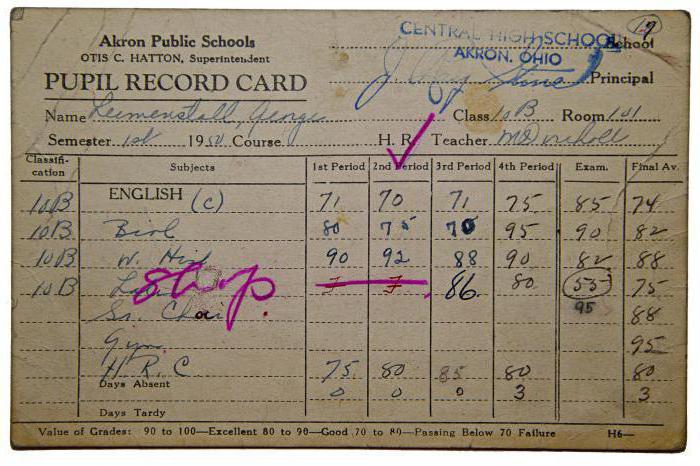 17
Akron Public Schools CENTRAL HIGH SCHOOL School
OTIS C. HATTON, Superintendent AKRON, OHIO
PUPIL RECORD CARD Principal
Name Leimenstoll, George Class 10B Room 101
Semester 1st 1950 Course H. R. Teacher
Classifi-cation Subjects 1st Period 2nd Period 3rd Period 4th Period Exam. Final Av.
10B ENGLISH (C) 71 70 71 75 85 74
10B Biol 80 75 75 95 90 82
10B W. Hist 90 92 88 90 82 88
10B shop F F 86. 80 55 75
Sr. Choir 95 88
Gym 95
H R C 75 80 85 80 80
Days Absent 0 0 0 3 3
Days Tardy
Value of Grades: 90 to 100—Excellent 80 to 90—Good 70 to 80—Passing Below 70 Failure H6—